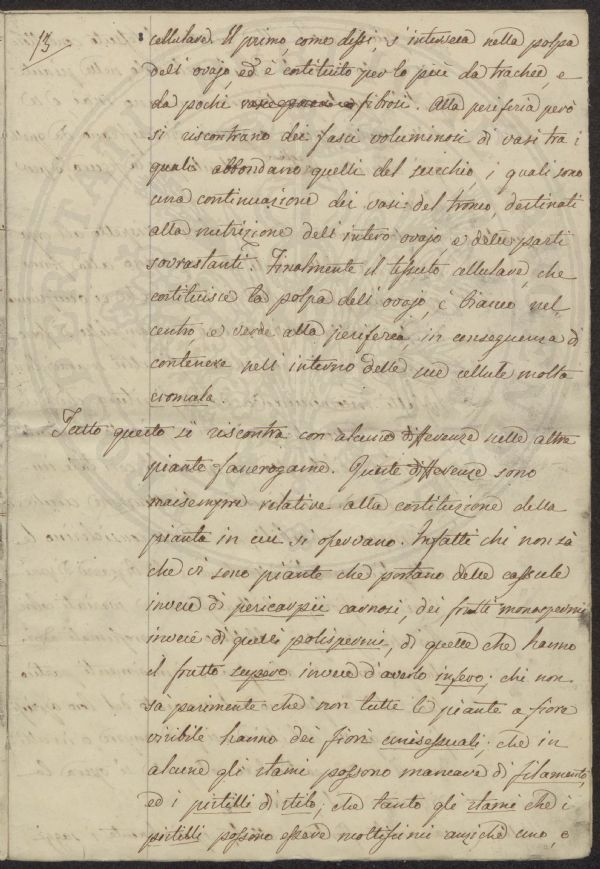 13
cellulare. Il primo, come dissi, s'interseca nella polpa
dell'ovajo, ed è costituito per lo più da trachee, e
da pochi fibrosi. Alla periferia però
si riscontrano dei fasci voluminosi di vasi tra i
quali abbondano quelli del secchio, i quali sono
una continuazione dei vasi del tronco, destinati
alla nutrizione dell'intero ovajo e delle parti
sovrastanti. Finalmente il tessuto cellulare, che
costituisce la polpa dell'ovajo, è bianco nel
centro, e verde alla periferia, in conseguenza di
contenere nell'interno delle sue cellule molta
cromula
Tutto questo si riscontra con alcune differenze nelle altre
piante fanerogame. Queste differenze sono
maisempre relative alla costituzione della
pianta in cui si osservano. Infatti chi non sà
che vi sono piante che portano delle cassule
invece di pericarpii carnosi, dei frutti monospermi
invece di quelli polispermi, di quelle che hanno
il frutto supero invece d'averlo infero; chi non
sà parimente che non tutte le piante a fiore
visibile hanno dei fiori unisessuali; che in
alcune gli stami possono mancare di filamento,
ed i pistilli di stilo; che tanto gli stami che i
pistilli possono essere moltissimi anzichè uno, o